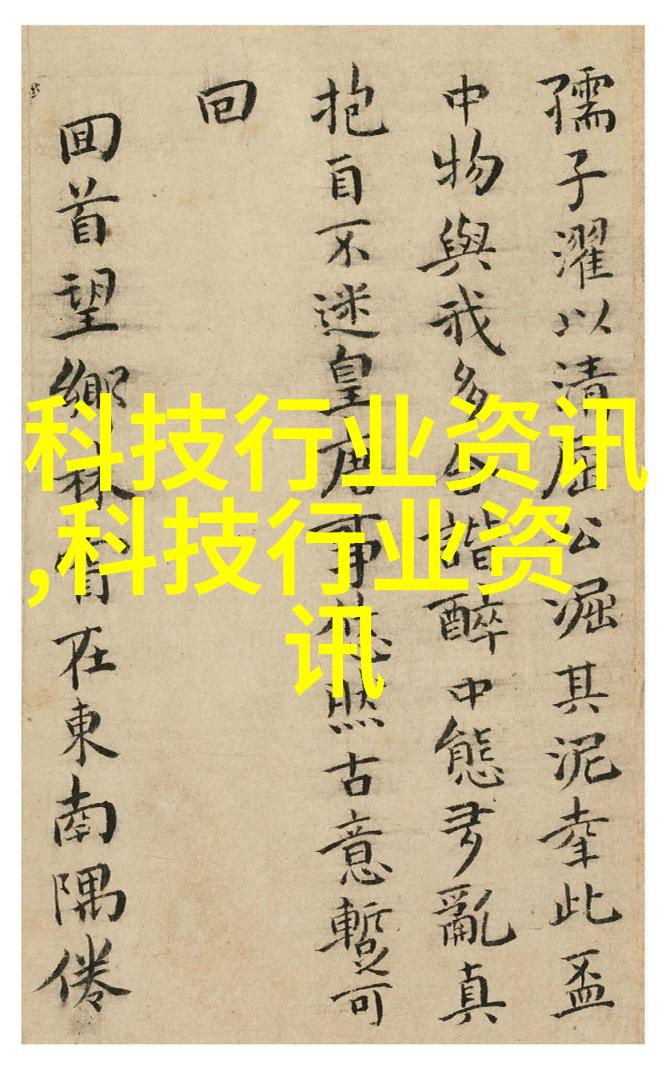 科技行业资讯
,科技行业资
讯
孺子濯以清屈公淈其泥幸此盃
中物與我多諧醉中態多亂真
抱自不迷皇唐事悠然古意暫可
回
回首望鄉林在東南隅倦